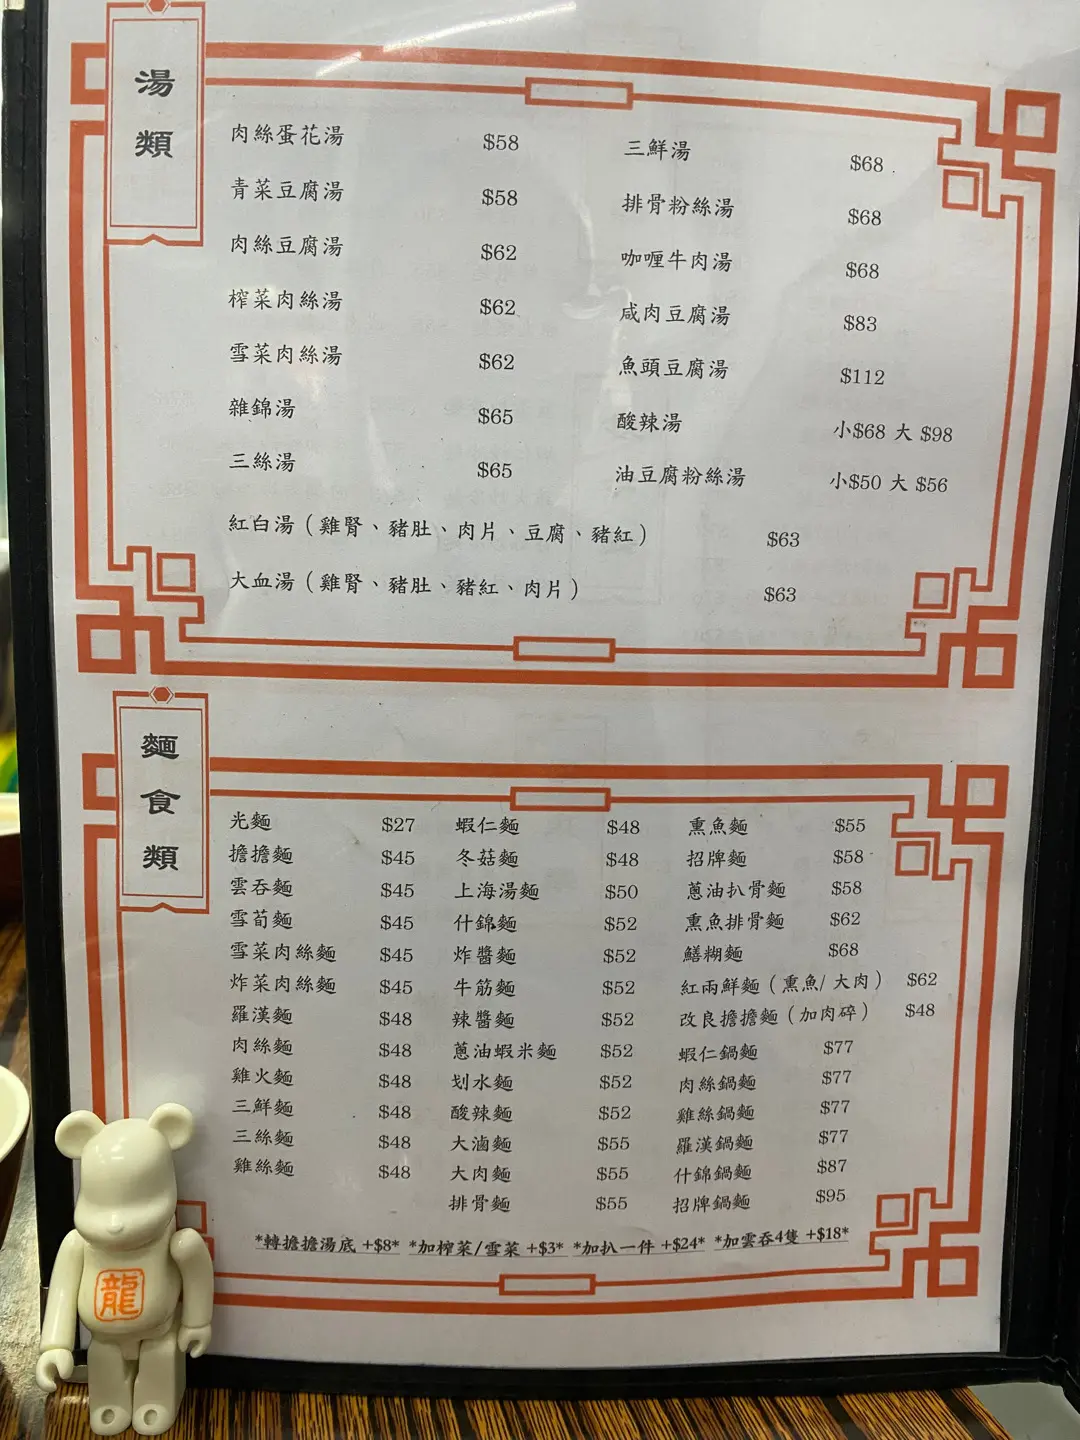 湯類
肉絲蛋花湯 $58
青菜豆腐湯 $58
肉絲豆腐湯 $62
榨菜肉絲湯 $62
雪菜肉絲湯 $62
雜錦湯 $65
三絲湯 $65
三鮮湯 $68
排骨粉絲湯 $68
咖喱牛肉湯 $68
咸肉豆腐湯 $83
魚頭豆腐湯 $112
酸辣湯 小$68 大 $98
油豆腐粉絲湯 小$50 大 $56
紅白湯（雞腎、豬肚、肉片、豆腐、豬紅） $63
大血湯（雞腎、豬肚、豬紅、肉片） $63
麵食類
光麵 $27
擔擔麵 $45
雲吞麵 $45
雪荀麵 $45
雪菜肉絲麵 $45
炸菜肉絲麵 $45
羅漢麵 $48
肉絲麵 $48
雞火麵 $48
三鮮麵 $48
三絲麵 $48
雞絲麵 $48
蝦仁麵 $48
冬菇麵 $48
上海湯麵 $50
什錦麵 $52
炸醬麵 $52
牛筋麵 $52
辣醬麵 $52
蔥油蝦米麵 $52
划水麵 $52
酸辣麵 $52
大滷麵 $55
大肉麵 $55
排骨麵 $55
熏魚麵 $55
招牌麵 $58
蔥油扒骨麵 $58
熏魚排骨麵 $62
鱔糊麵 $68
紅兩鮮麵（熏魚/大肉） $62
改良擔擔麵（加肉碎） $48
蝦仁鍋麵 $77
肉絲鍋麵 $77
雞絲鍋麵 $77
羅漢鍋麵 $77
什錦鍋麵 $87
招牌鍋麵 $95
*轉擔擔湯底 +$8* *加榨菜/雪菜 +$3* *加扒一件 +$24* *加雲吞4隻 +$18*
龍